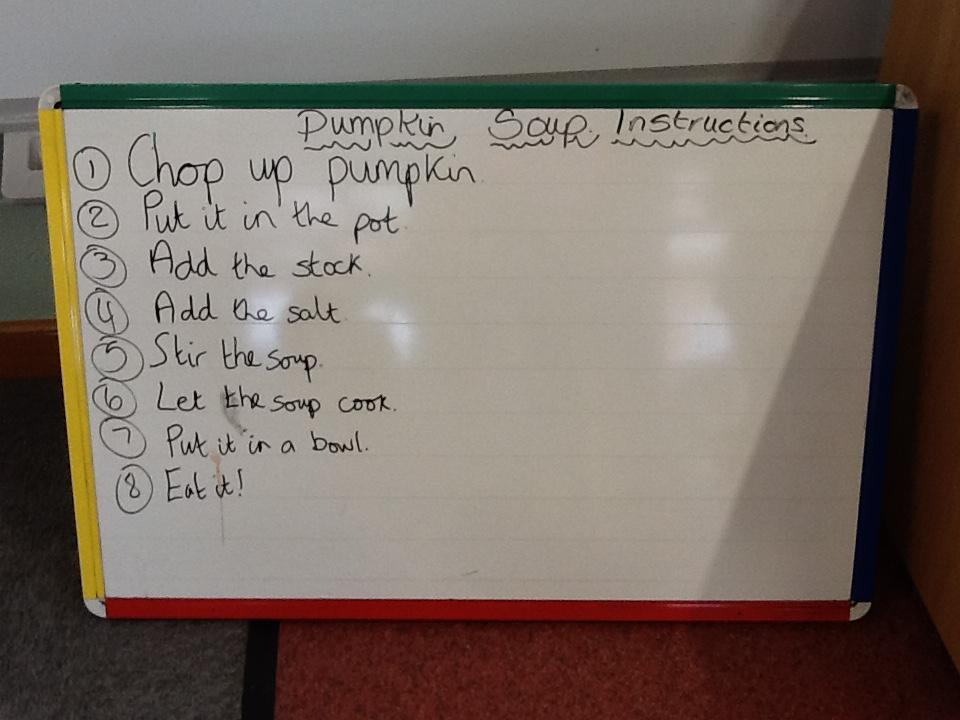 Pumpkin Soup Instructions
1 Chop up pumpkin.
2 Put it in the pot.
3 Add the stock.
4 Add the salt
5 Stir the soup.
6 Let the soup cook.
7 Put it in a bowl.
8 Eat it!